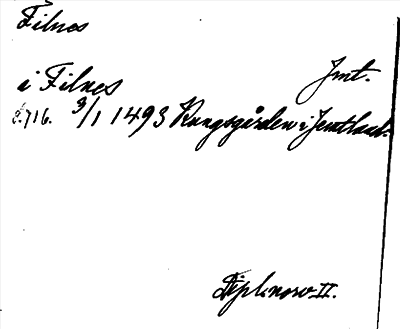 Filnes
i Filnes Jmt.
s. 716. 3/1 1493 Kungsgården i Jemtland.
Dipl. norv. II.